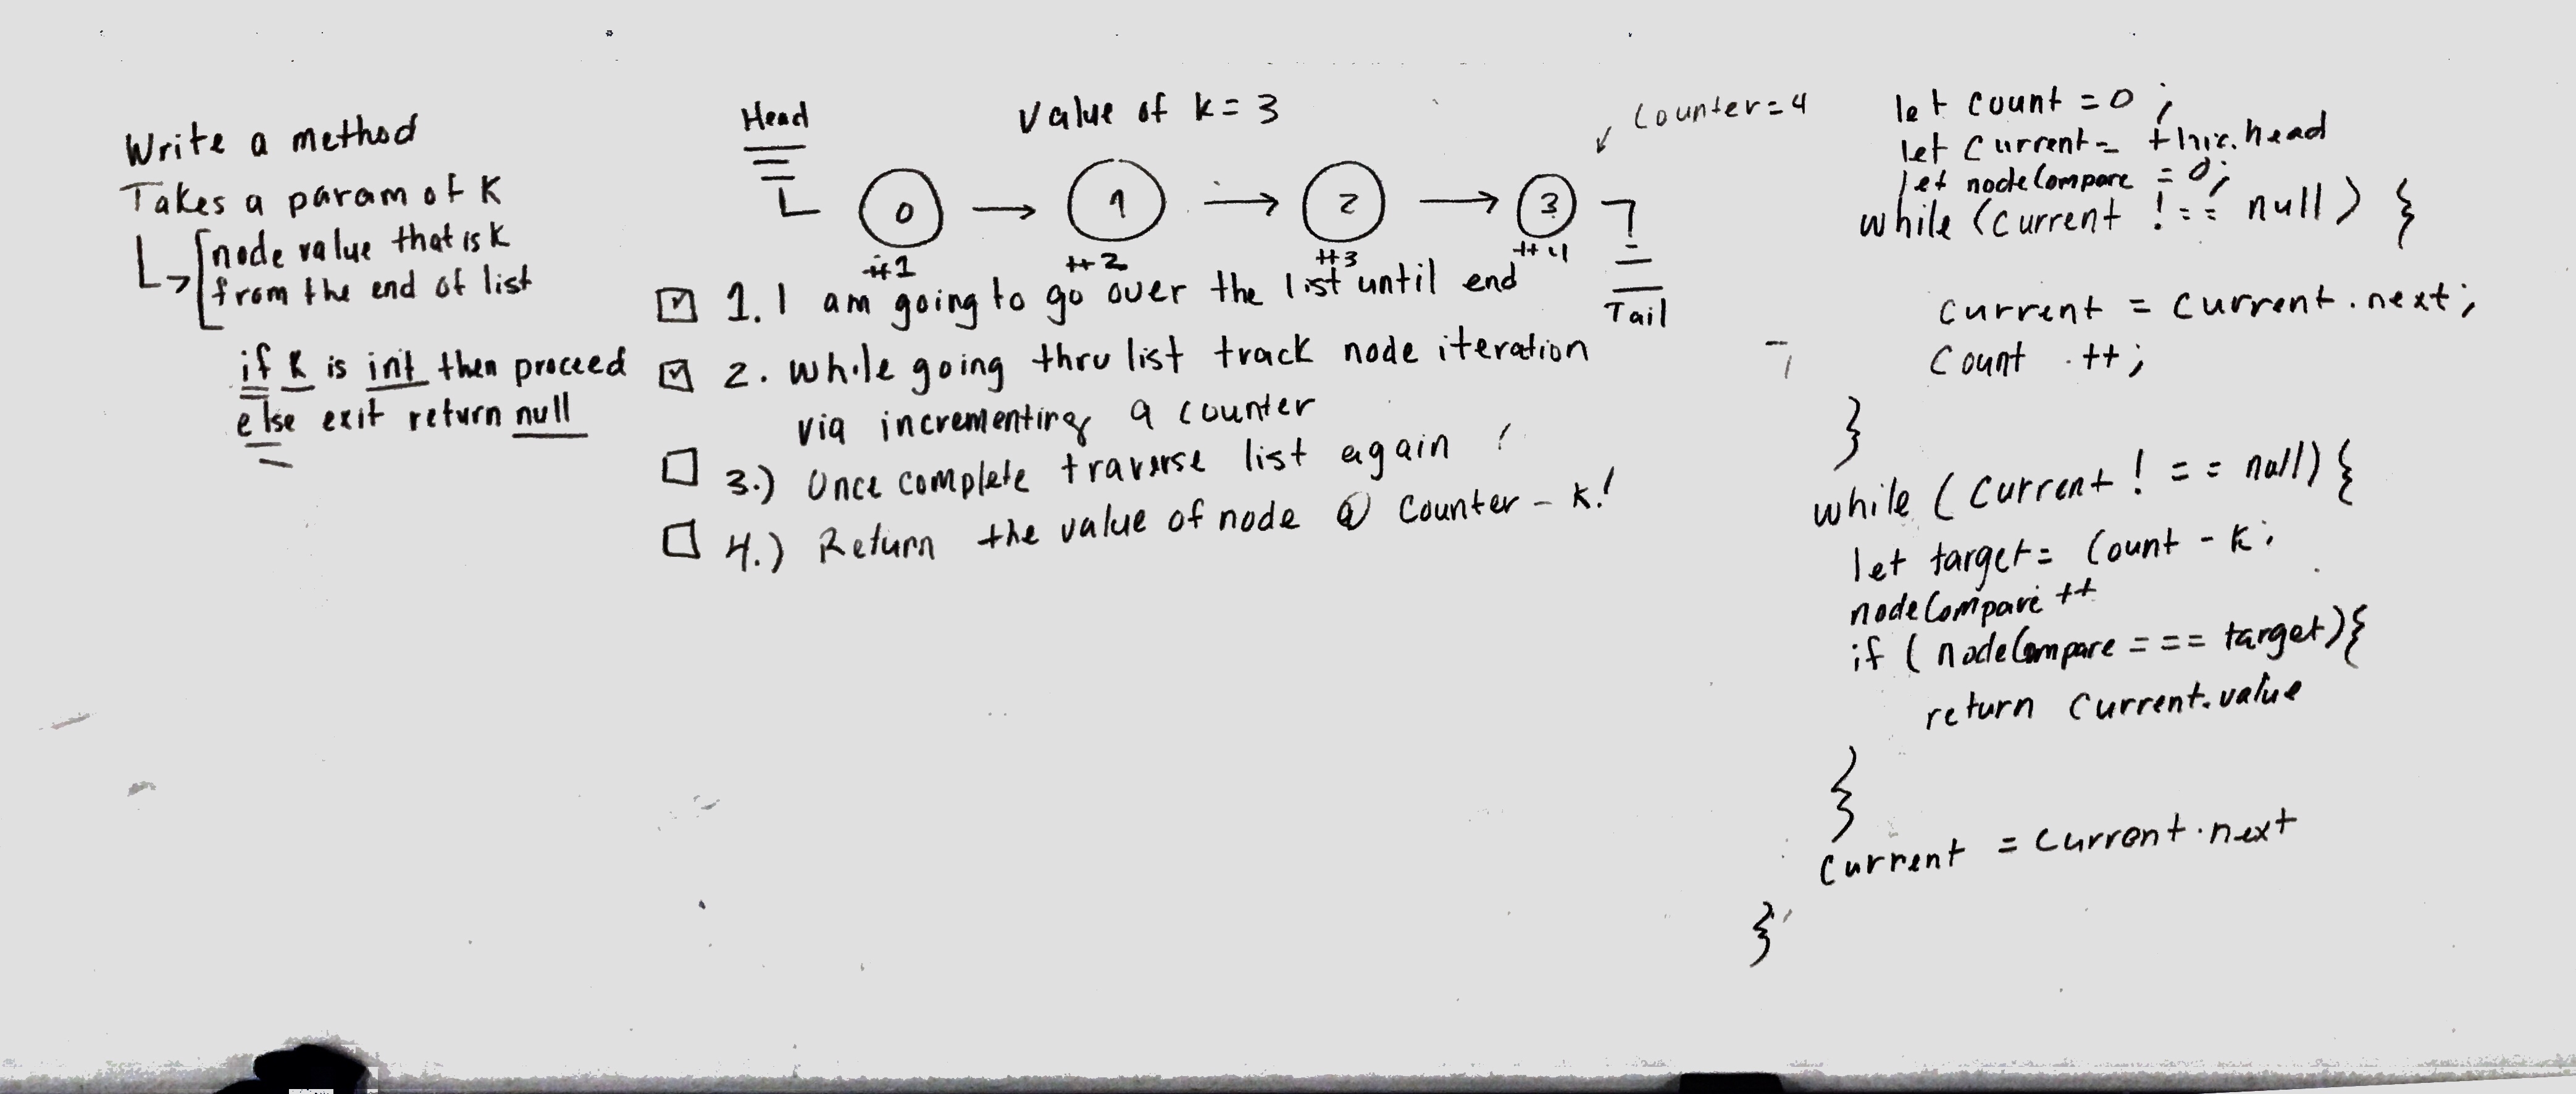 Write a method
Takes a param of K
node value that is K
from the end of list
if K is int then proceed
else exit return null
Head
Value of k = 3
Counter = 4
0 → 1 → 2 → 3
#1 #2 #3 #4
Tail
1. I am going to go over the list until end
2. while going thru list track node iteration
via incrementing a counter
3.) Once complete traverse list again
4.) Return the value of node @ Counter - k!
let count = 0;
let current = this.head
let nodeCompare = 0;
while (current !== null) {
current = current.next;
Count ++;
}
while (current !== null) {
let target = Count - k;
nodeCompare ++
if (nodeCompare === target) {
return current.value
}
current = current.next
}